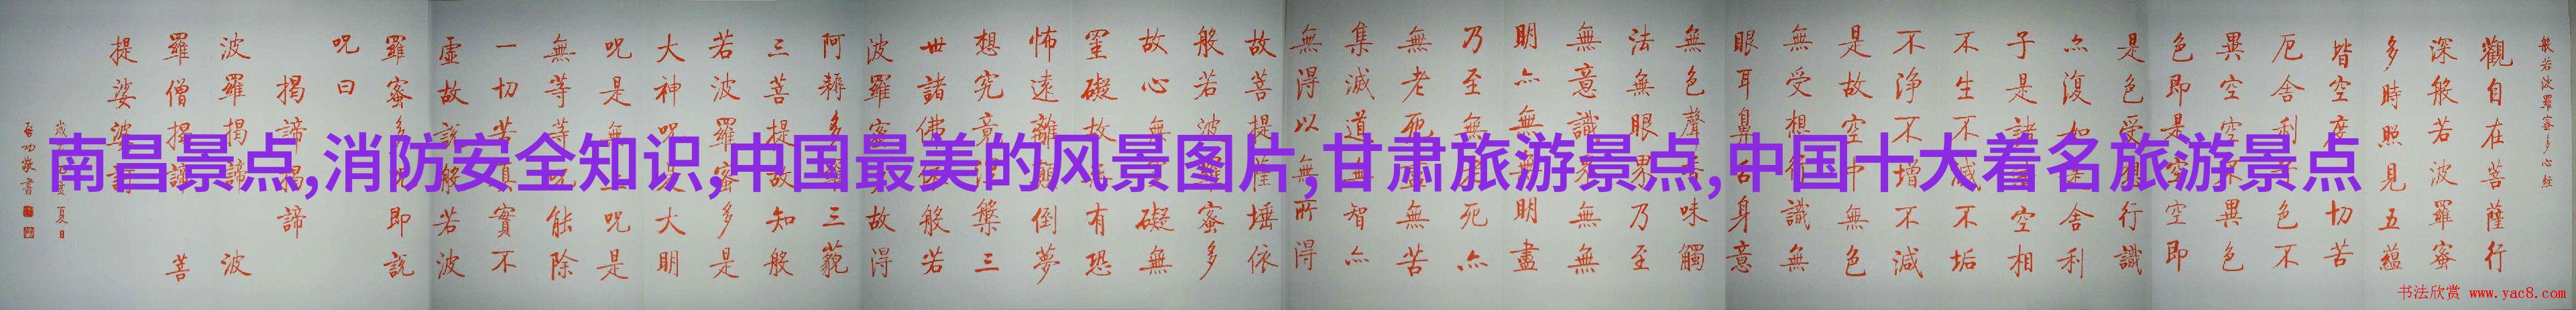 南昌景点,消防安全知识,中国最美的风景图片,甘肃旅游景点,中国十大着名旅游景点
般若波羅蜜多心經
觀自在菩薩行
深般若波羅蜜
多時照見五蘊
皆空度一切苦
厄舍利子色不
異空空不異色
色即是空空即
是色受想行識
亦復如是舍利
子是諸法空相
不生不滅不垢
不净不增不減
是故空中無色
無受想行識無
眼耳鼻舌身意
無色聲香味觸
法無眼界乃至
無意識界無無
明亦無無明盡
乃至無老死亦
無老死盡無苦
集滅道無智亦
無得以無所得
故菩提薩埵依
般若波羅蜜多
故心無罣礙無
罣礙故無有恐
怖遠離顛倒夢
想究竟涅槃三
世諸佛依般若
波羅蜜多故得
阿耨多羅三藐
三菩提故知般
若波羅蜜多是
大神呪是大明
呪是無上呪是
無等等呪能除
一切苦真實不
虛故說般若波
羅蜜多呪即說
呪曰
揭諦揭諦
波羅揭諦 波
羅僧揭諦 菩
提婆婆訶
夏日
啓功敬書
书法欣赏 www.yac8.com